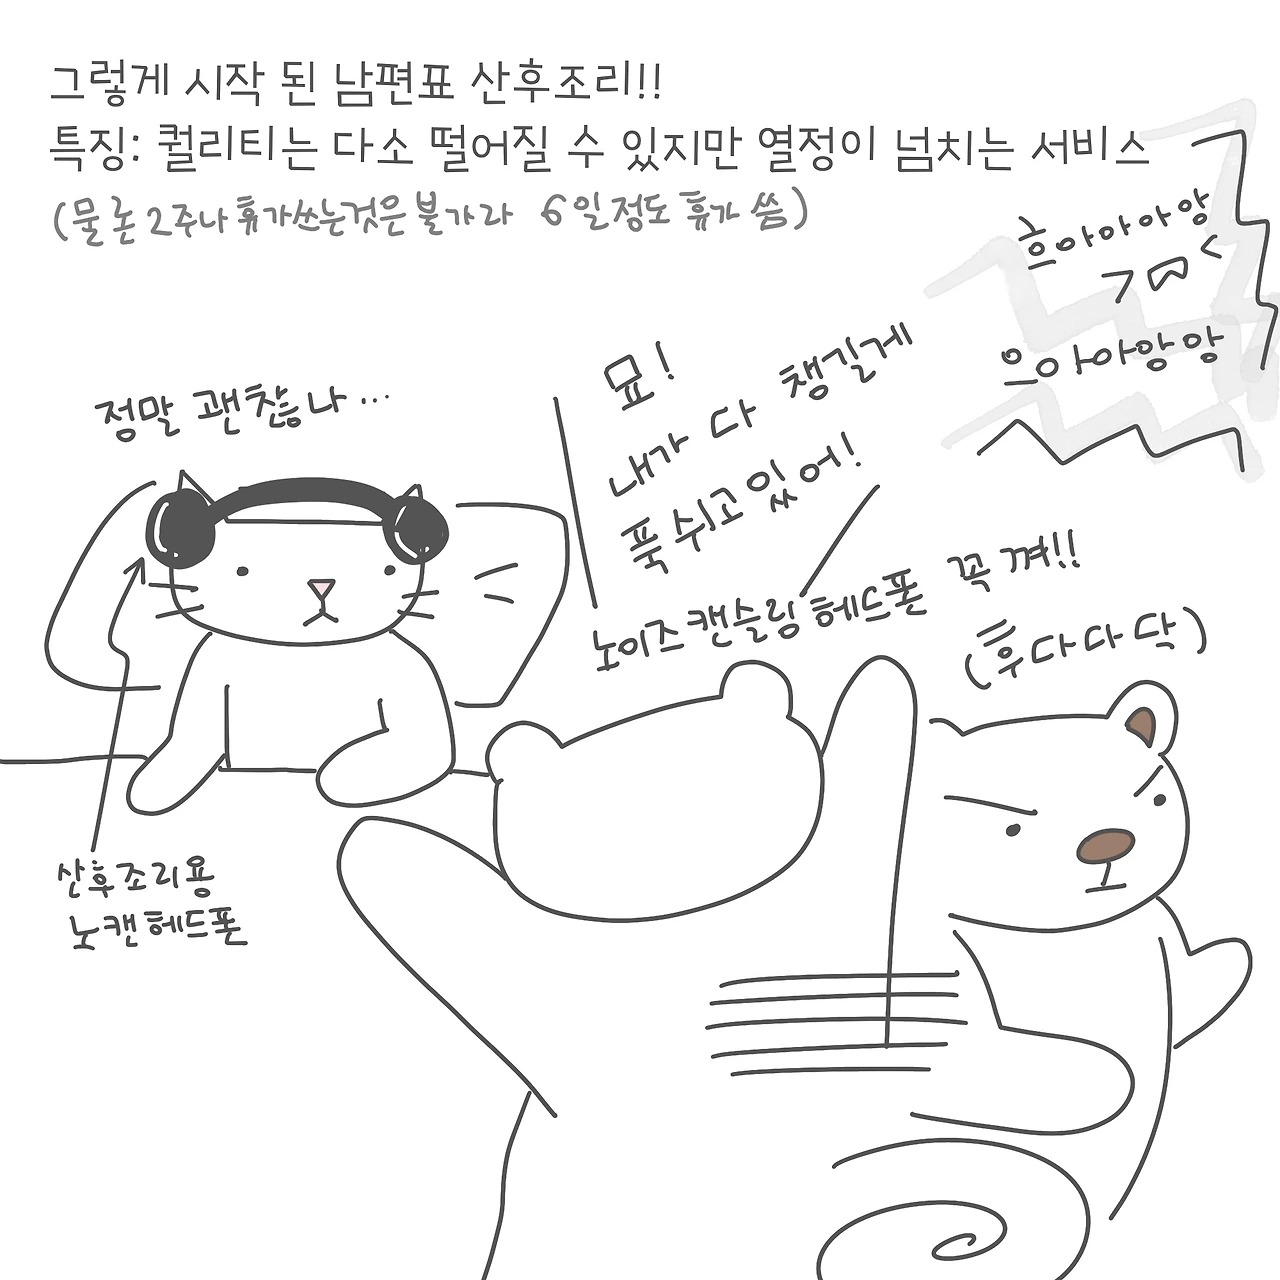 그렇게 시작 된 남편표 산후조리!!
특징: 퀄리티는 다소 떨어질 수 있지만 열정이 넘치는 서비스
(물론 2주나 휴가쓰는것은 불가라 6일정도 휴가 씀)
흐아아아앙
으아아앙앙
정말 괜찮나...
묘!
내가 다 챙길게
푹 쉬고있어!
노이즈캔슬링 헤드폰 꼭 껴!!
(후다다닥)
산후조리용
노캔헤드폰